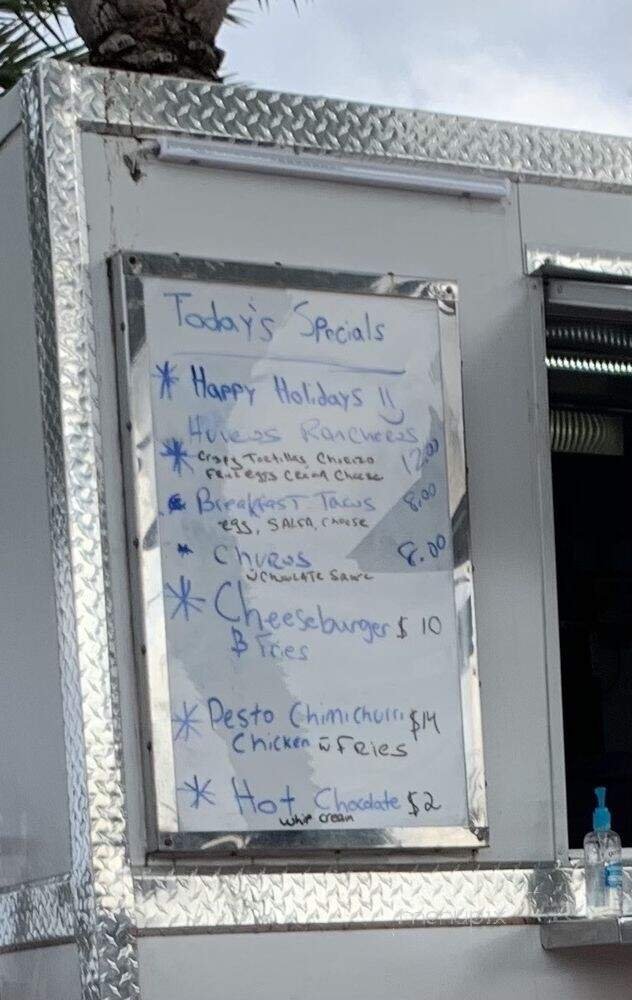 Today's Specials
* Happy Holidays !!
Huevos Rancheros
* Crispy Tortillas Chorizo 12.00
Fried eggs Cream Cheese
* Breakfast Tacos 8.00
egg, SALSA, cheese
* Churos 8.00
w̄ Chocolate Sauce
* Cheeseburger $ 10
& Fries
* Pesto Chimichurri $14
Chicken w̄ Fries
* Hot Chocolate $2
whip cream
menupix